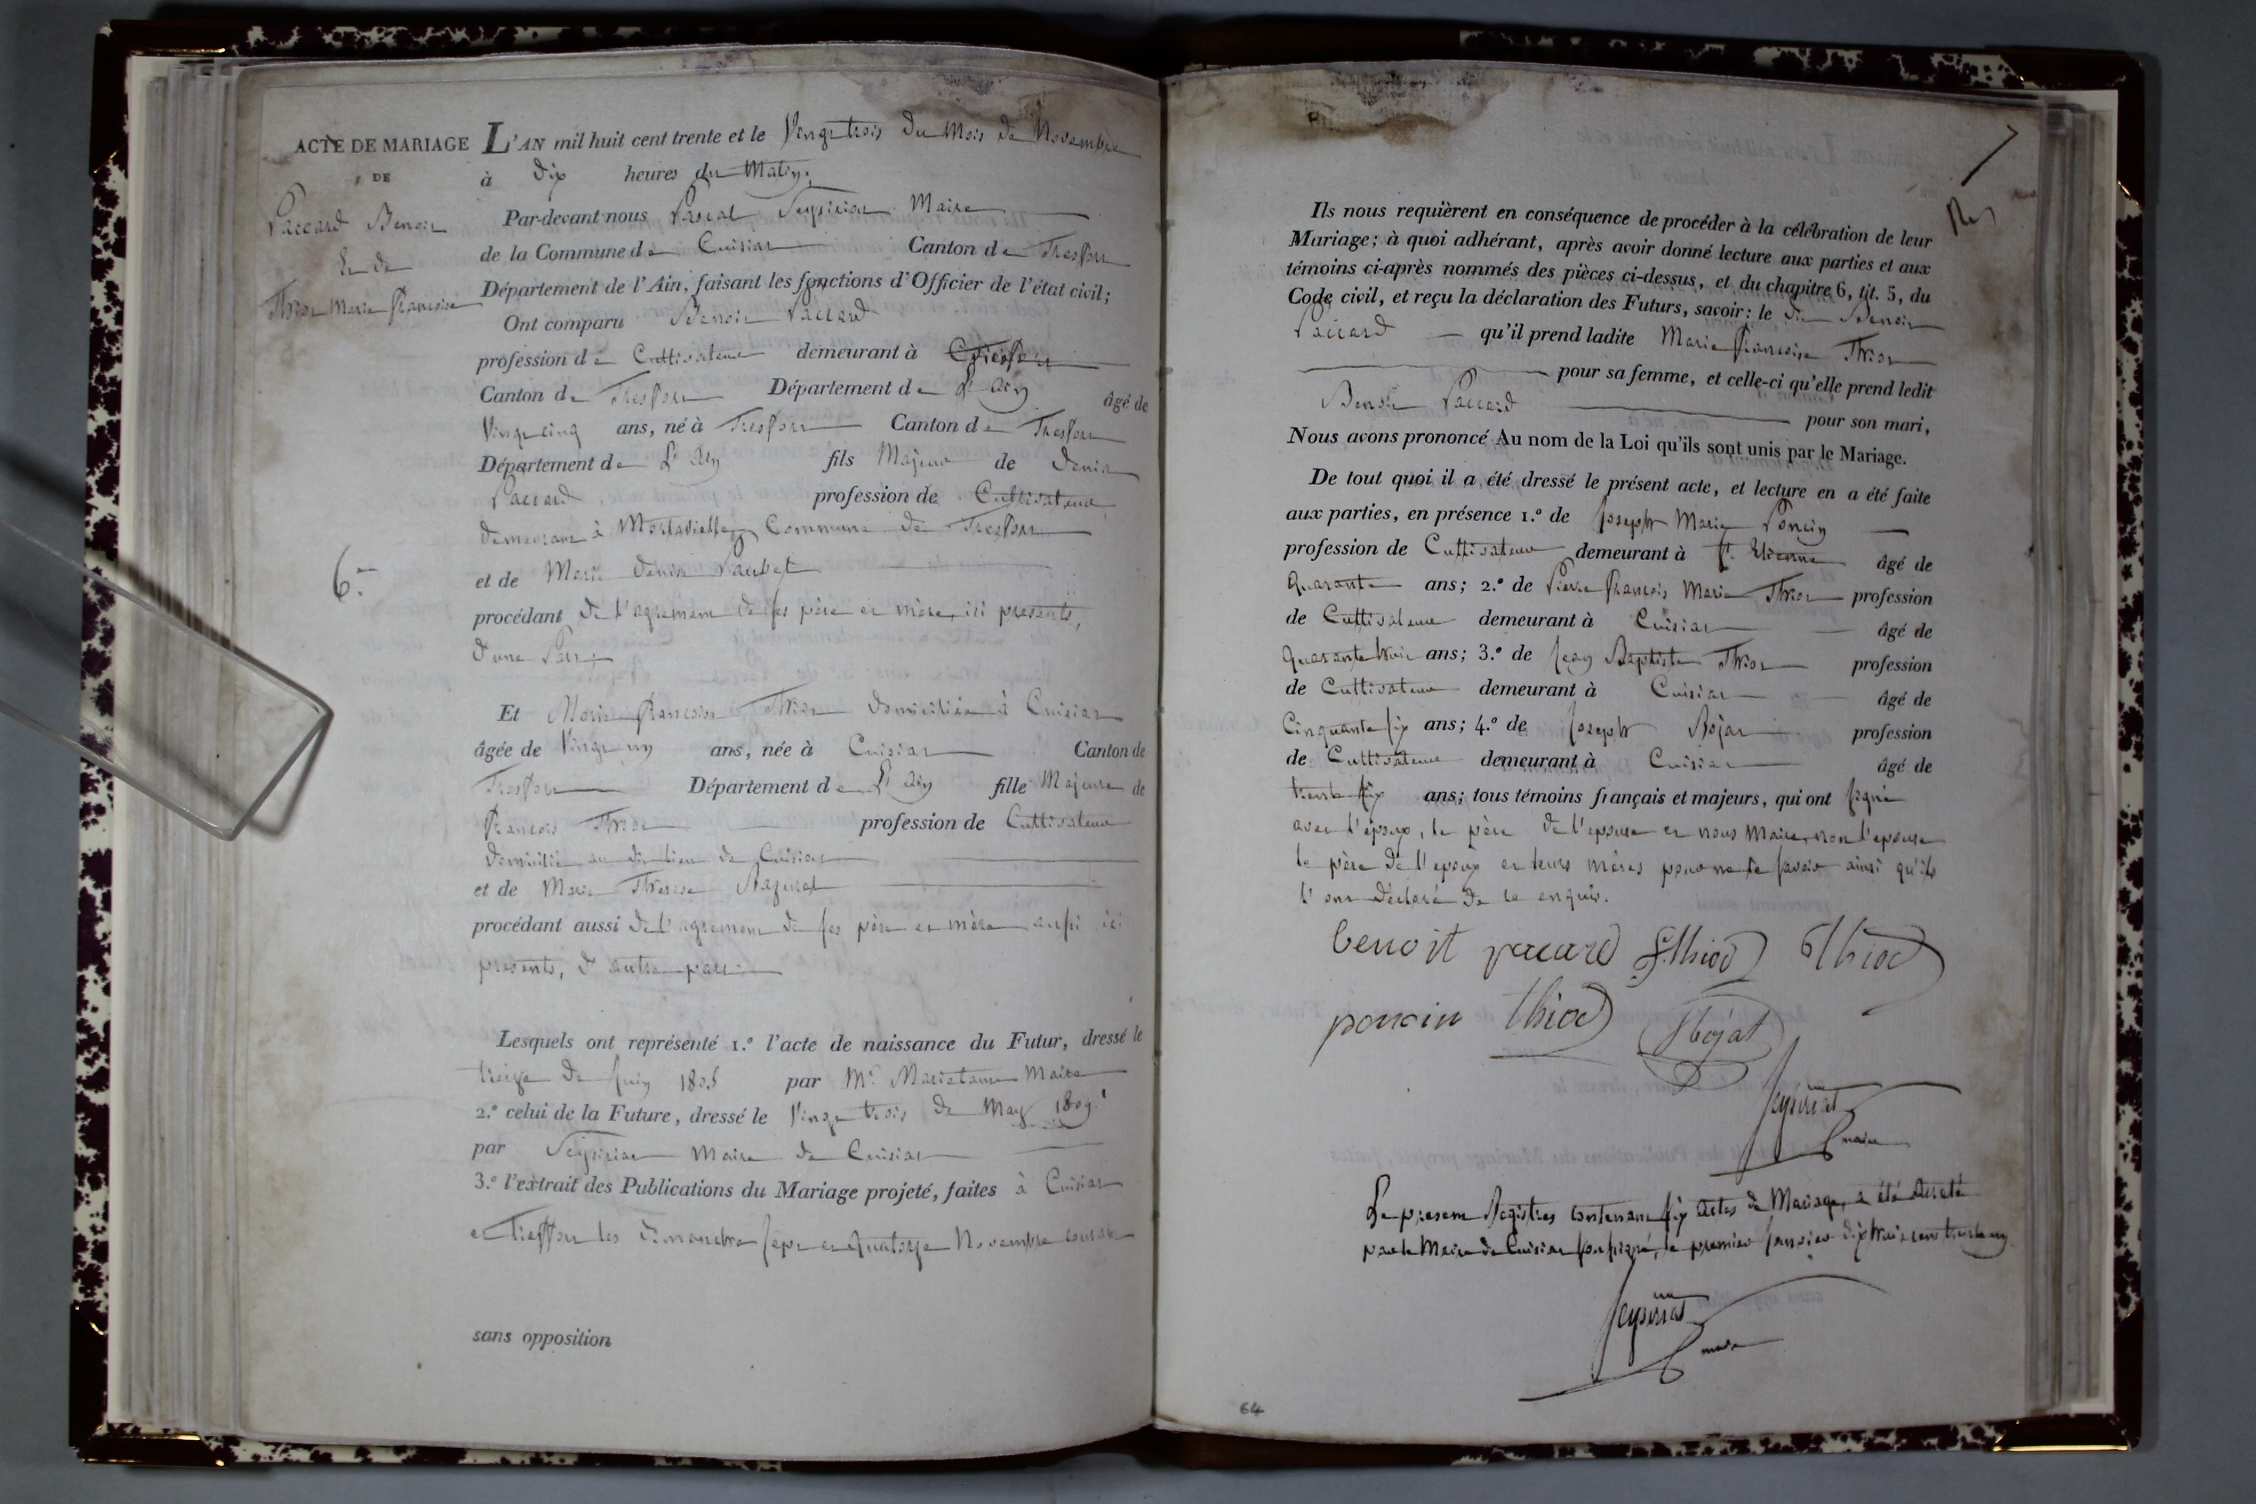 ACTE DE MARIAGE
DE
Paccard Benoit
Et de
Thiot Marie françoise
6.e
L'AN mil huit cent trente et le Vingt trois du Mois de Novembre
à dix heures du Matin,
Par-devant nous Pascal Seyssiriat Maire
de la Commune de Cuisiat Canton de Treffort
Département de l'Ain, faisant les fonctions d'Officier de l'état civil;
Ont comparu Benoit Paccard
profession de Cultivateur demeurant à Treffort
Canton de Treffort Département de L'ain âgé de
Vingt cinq ans, né à Treffort Canton de Treffort
Département de L'ain fils Majeur de Denis
Paccard profession de Cultivateur
demeurant à Commune de Treffort
et de Marie Denise
procédant de l'agrement de ses père et mère, ici presents,
d'une Part;
Et Marie françoise Thiot domiciliée à Cuisiat
âgée de Vingt un ans, née à Cuisiat Canton de
Treffort Département de L'ain fille Majeure de
François Thiot profession de Cultivateur
domicilié au dit lieu de Cuisiat
et de Marie Therese
procédant aussi de l'agrement de ses père et mère aussi ici
presents, d'autre part;
Lesquels ont représenté 1.º l'acte de naissance du Futur, dressé le
treize de Juin 1805 par Mr. Maire
2.º celui de la Future, dressé le Vingt trois de May 1809.
par Seyssiriat Maire de Cuisiat
3.º l'extrait des Publications du Mariage projeté, faites à Cuisiat
et Treffort les dimanches sept et quatorze Novembre courant
sans opposition
Ils nous requièrent en conséquence de procéder à la célébration de leur
Mariage; à quoi adhérant, après avoir donné lecture aux parties et aux
témoins ci-après nommés des pièces ci-dessus, et du chapitre 6, tit. 5, du
Code civil, et reçu la déclaration des Futurs, savoir: le dit Benoit
Paccard qu'il prend ladite Marie françoise Thiot
pour sa femme, et celle-ci qu'elle prend ledit
Benoit Paccard pour son mari,
Nous avons prononcé Au nom de la Loi qu'ils sont unis par le Mariage.
De tout quoi il a été dressé le présent acte, et lecture en a été faite
aux parties, en présence 1.º de Joseph Marie Poncin
profession de Cultivateur demeurant à St. Etienne âgé de
Quarante ans; 2.º de Pierre françois Marie Thiot profession
de Cultivateur demeurant à Cuisiat âgé de
Quarante huit ans; 3.º de Jean Baptiste Thiot profession
de Cultivateur demeurant à Cuisiat âgé de
Cinquante six ans; 4.º de Joseph Bojat profession
de Cultivateur demeurant à Cuisiat âgé de
trente six ans; tous témoins français et majeurs, qui ont signé
avec l'époux, le père de l'epouse et nous Maire, non l'epouse
le père de l'epoux et leurs mères pour ne le savoir ainsi qu'ils
l'ont déclaré de ce enquis.
benoit pacard f. thiod thiod
poncin thiod Bojat
Seyssiriat
maire
Le present Registres contenant six actes de Mariage, a été arreté
par le Maire de Cuisiat soussigné, le premier Janvier dix huit cent trente un
Seyssiriat
maire
64